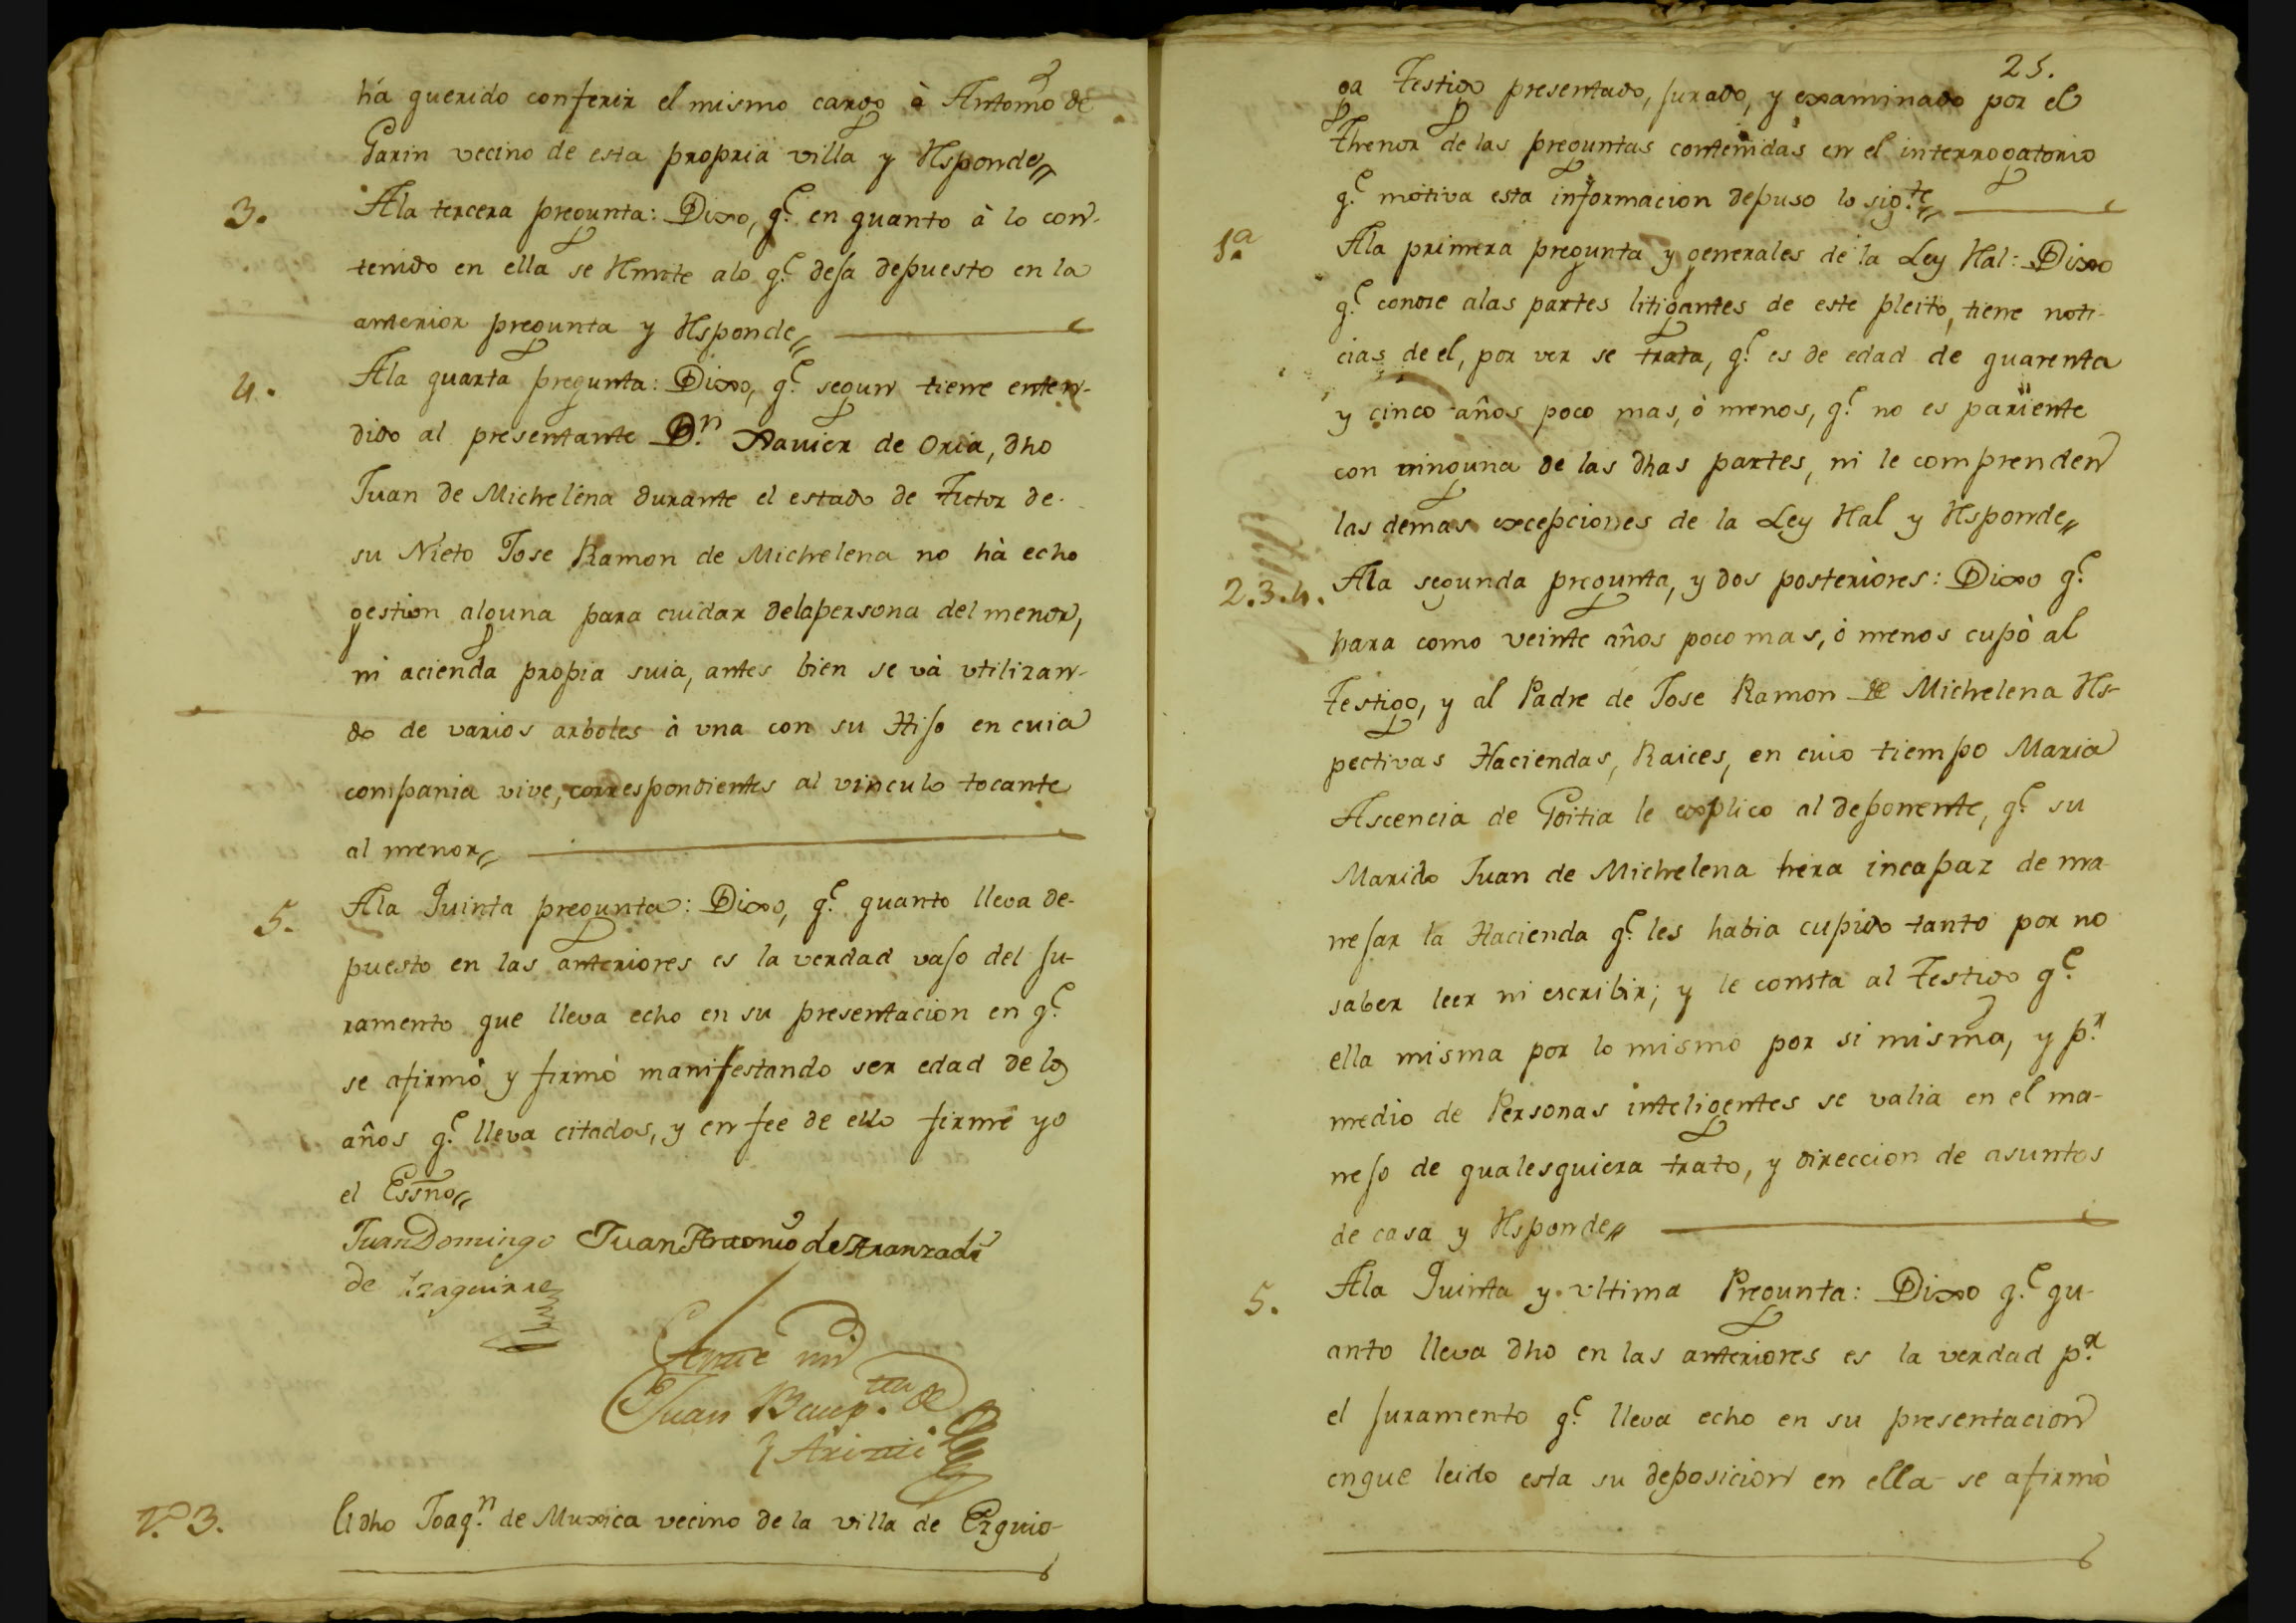 há querido conferir el mismo cargo à Antonio de
Garin vecino de esta propria villa y Rsponde
3. Ala tercera pregunta: Dixo, q.e en quanto à lo con-
tenido en ella se Rmite alo q.e deja depuesto en la
anterior pregunta y Rsponde
4. Ala quarta pregunta: Dixo, q.e segun tiene enten-
dido al presentante D.n Xavier de Oria, dho
Juan de Michelena durante el estado de Tutor de
su Nieto Jose Ramon de Michelena no hà echo
gestion alguna para cuidar delapersona del menor,
ni acienda propia suia, antes bien se và vtilizan-
do de varios arboles à vna con su Hijo en cuia
compania vive, correspondientes al vinculo tocante
al menor
5. Ala Quinta pregunta: Dixo, q.e quanto lleva de-
puesto en las anteriores es la verdad vajo del ju-
ramento que lleva echo en su presentacion en q.e
se afirmò y firmò manifestando ser edad de los
años q.e lleva citados, y en fee de ello firme yo
el Essno
Juan Domingo Juan Antonio de Aranzadi
de Izaguirre
Ante mi
Juan Baup.ta de
Arizti
T.o 3. El dho Joaq.n de Muxica vecino de la villa de Ezquio-
25.
ga Testigo presentado, jurado, y examinado por el
thenor de las preguntas contenidas en el interrogatorio
q.e motiva esta informacion depuso lo sig.te
1.a Ala primera pregunta y generales de la Ley Ral: Dixo
q.e conoce alas partes litigantes de este pleito, tiene noti-
cias de el, por ver se trata, q.e es de edad de quarenta
y cinco años poco mas, ò menos, q.e no es pariente
con ninguna de las dhas partes, ni le comprenden
las demas excepciones de la Ley Ral y Rsponde
2.3.4. Ala segunda pregunta, y dos posteriores: Dixo q.e
hara como veinte años poco mas, ò menos cupò al
Testigo, y al Padre de Jose Ramon de Michelena Rs-
pectivas Haciendas, Raices, en cuio tiempo Maria
Ascencia de Goitia le explico al deponente, q.e su
Marido Juan de Michelena hera incapaz de ma-
nejar la Hacienda q.e les habia cupido tanto por no
saber leer ni escribir; y le consta al Testigo q.e
ella misma por lo mismo por si misma, y p.r
medio de Personas inteligentes se valia en el ma-
nejo de qualesquiera trato, y direccion de asuntos
de casa y Rsponde
5. Ala Quinta y vltima Pregunta: Dixo q.e qu-
anto lleva dho en las anteriores es la verdad p.r
el juramento q.e lleva echo en su presentacion
enque leido esta su deposicion en ella se afirmò